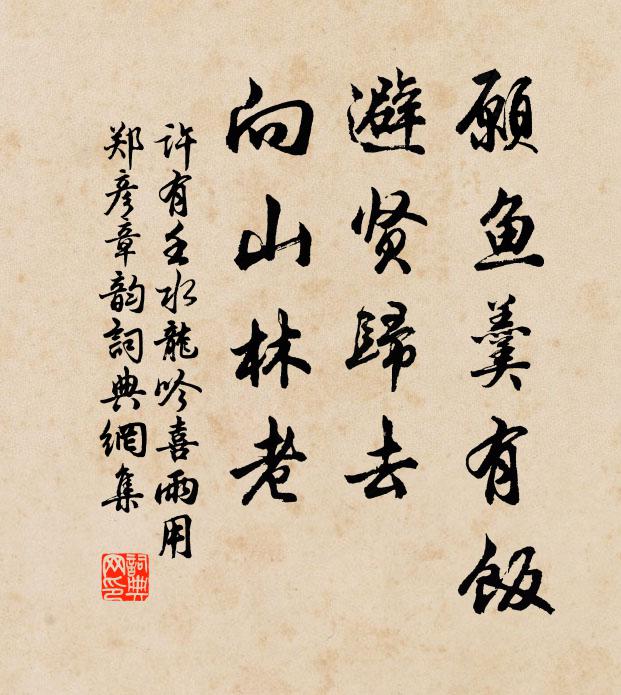 願鱼羹有飯
避贤歸去
向山林老
许有壬水龍吟喜雨用
郑彦章韵詞典網集
詞典
网印